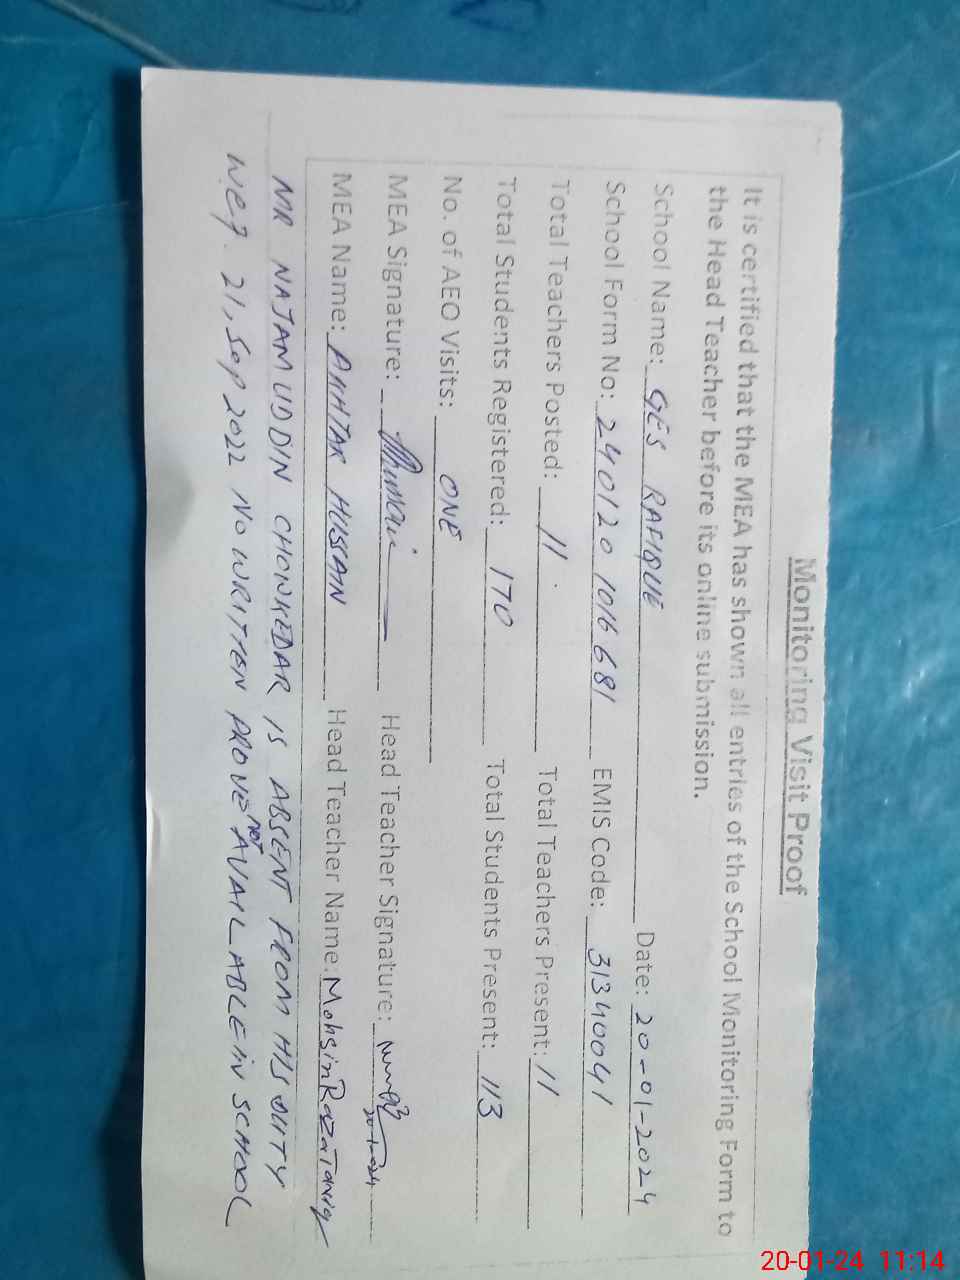 Monitoring Visit Proof
It is certified that the MEA has shown all entries of the School Monitoring Form to
the Head Teacher before its online submission.
School Name: GES RAFIQUE Date: 20-01-2024
School Form No: 240120 1016 681 EMIS Code: 31340041
Total Teachers Posted: 11 Total Teachers Present: 11
Total Students Registered: 170 Total Students Present: 113
No. of AEO Visits: ONE
MEA Signature: Head Teacher Signature:
MEA Name: AKHTAR HUSSAN Head Teacher Name: Mohsin Raza Tariq
MR NAJAMUDDIN CHOWKEDAR IS ABSENT FROM HIS DUTY
w.e.f. 21, Sep 2022 NO WRITTEN PROVE not AVAILABLE IN SCHOOL
20-01-24 11:14